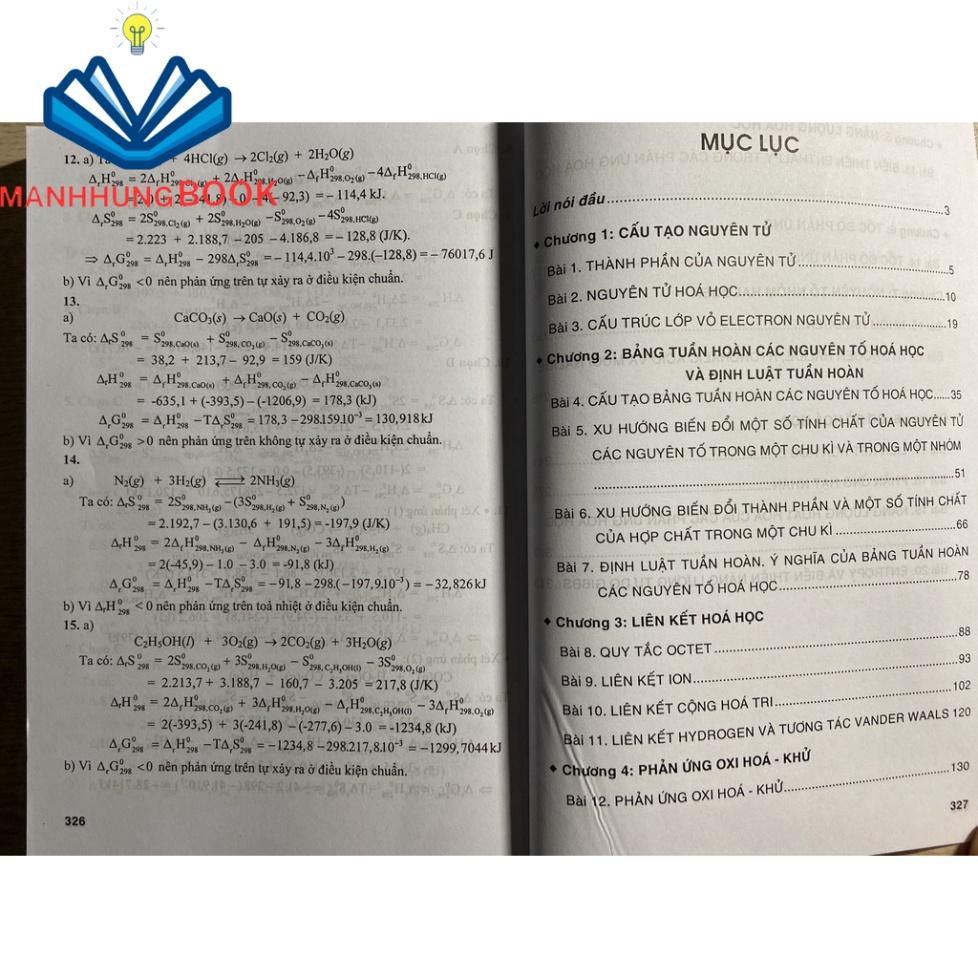 MANHHUNGBOOK
12. a) + 4HCl(g) → 2Cl₂(g) + 2H₂O(g)
ΔᵣH⁰₂₉₈ = 2Δ_fH⁰₂₉₈,Cl₂(g) + 2Δ_fH⁰₂₉₈,H₂O(g) − Δ_fH⁰₂₉₈,O₂(g) − 4Δ_fH⁰₂₉₈,HCl(g)
92,3) = − 114,4 kJ.
ΔᵣS⁰₂₉₈ = 2S⁰₂₉₈,Cl₂(g) + 2S⁰₂₉₈,H₂O(g) − S⁰₂₉₈,O₂(g) − 4S⁰₂₉₈,HCl(g)
= 2.223 + 2.188,7 − 205 − 4.186,8 = − 128,8 (J/K).
⇒ ΔᵣG⁰₂₉₈ = ΔᵣH⁰₂₉₈ − 298ΔᵣS⁰₂₉₈ = − 114,4.10³ − 298.(−128,8) = − 76017,6 J
b) Vì ΔᵣG⁰₂₉₈ < 0 nên phản ứng trên tự xảy ra ở điều kiện chuẩn.
13.
a) CaCO₃(s) → CaO(s) + CO₂(g)
Ta có: ΔᵣS⁰₂₉₈ = S⁰₂₉₈,CaO(s) + S⁰₂₉₈,CO₂(g) − S⁰₂₉₈,CaCO₃(s)
= 38,2 + 213,7 − 92,9 = 159 (J/K)
ΔᵣH⁰₂₉₈ = Δ_fH⁰₂₉₈,CaO(s) + Δ_fH⁰₂₉₈,CO₂(g) − Δ_fH⁰₂₉₈,CaCO₃(s)
= -635,1 + (-393,5) − (-1206,9) = 178,3 (kJ)
ΔᵣG⁰₂₉₈ = ΔᵣH⁰₂₉₈ − TΔᵣS⁰₂₉₈ = 178,3 − 298.159.10⁻³ = 130,918 kJ
b) Vì ΔᵣG⁰₂₉₈ > 0 nên phản ứng trên không tự xảy ra ở điều kiện chuẩn.
14.
a) N₂(g) + 3H₂(g) ⇌ 2NH₃(g)
Ta có: ΔᵣS⁰₂₉₈ = 2S⁰₂₉₈,NH₃(g) − (3S⁰₂₉₈,H₂(g) + S⁰₂₉₈,N₂(g))
= 2.192,7 − (3.130,6 + 191,5) = -197,9 (J/K)
ΔᵣH⁰₂₉₈ = 2Δ_fH⁰₂₉₈,NH₃(g) − Δ_fH⁰₂₉₈,N₂(g) − 3Δ_fH⁰₂₉₈,H₂(g)
= 2(-45,9) − 1.0 − 3.0 = -91,8 (kJ)
ΔᵣG⁰₂₉₈ = ΔᵣH⁰₂₉₈ − TΔᵣS⁰₂₉₈ = −91,8 − 298.(−197,9.10⁻³) = −32,826 kJ
b) Vì ΔᵣH⁰₂₉₈ < 0 nên phản ứng trên toả nhiệt ở điều kiện chuẩn.
15. a)
C₂H₅OH(l) + 3O₂(g) → 2CO₂(g) + 3H₂O(g)
Ta có: ΔᵣS⁰₂₉₈ = 2S⁰₂₉₈,CO₂(g) + 3S⁰₂₉₈,H₂O(g) − S⁰₂₉₈,C₂H₅OH(l) − 3S⁰₂₉₈,O₂(g)
= 2.213,7 + 3.188,7 − 160,7 − 3.205 = 217,8 (J/K)
ΔᵣH⁰₂₉₈ = 2Δ_fH⁰₂₉₈,CO₂(g) + 3Δ_fH⁰₂₉₈,H₂O(g) − Δ_fH⁰₂₉₈,C₂H₅OH(l) − 3Δ_fH⁰₂₉₈,O₂(g)
= 2(-393,5) + 3(-241,8) − (-277,6) − 3.0 = -1234,8 (kJ)
ΔᵣG⁰₂₉₈ = ΔᵣH⁰₂₉₈ − TΔᵣS⁰₂₉₈ = −1234,8 − 298.217,8.10⁻³ = −1299,7044 kJ
b) Vì ΔᵣG⁰₂₉₈ < 0 nên phản ứng trên tự xảy ra ở điều kiện chuẩn.
326
MỤC LỤC
Lời nói đầu...3
♦ Chương 1: CẤU TẠO NGUYÊN TỬ
Bài 1. THÀNH PHẦN CỦA NGUYÊN TỬ...5
Bài 2. NGUYÊN TỬ HOÁ HỌC...10
Bài 3. CẤU TRÚC LỚP VỎ ELECTRON NGUYÊN TỬ...19
♦ Chương 2: BẢNG TUẦN HOÀN CÁC NGUYÊN TỐ HOÁ HỌC
VÀ ĐỊNH LUẬT TUẦN HOÀN
Bài 4. CẤU TẠO BẢNG TUẦN HOÀN CÁC NGUYÊN TỐ HOÁ HỌC......35
Bài 5. XU HƯỚNG BIẾN ĐỔI MỘT SỐ TÍNH CHẤT CỦA NGUYÊN TỬ
CÁC NGUYÊN TỐ TRONG MỘT CHU KÌ VÀ TRONG MỘT NHÓM
...51
Bài 6. XU HƯỚNG BIẾN ĐỔI THÀNH PHẦN VÀ MỘT SỐ TÍNH CHẤT
CỦA HỢP CHẤT TRONG MỘT CHU KÌ...66
Bài 7. ĐỊNH LUẬT TUẦN HOÀN. Ý NGHĨA CỦA BẢNG TUẦN HOÀN
CÁC NGUYÊN TỐ HOÁ HỌC...78
♦ Chương 3: LIÊN KẾT HOÁ HỌC
Bài 8. QUY TẮC OCTET...88
Bài 9. LIÊN KẾT ION...93
Bài 10. LIÊN KẾT CỘNG HOÁ TRI...102
Bài 11. LIÊN KẾT HYDROGEN VÀ TƯƠNG TÁC VANDER WAALS 120
♦ Chương 4: PHẢN ỨNG OXI HOÁ - KHỬ
Bài 12. PHẢN ỨNG OXI HOÁ - KHỬ...130
327